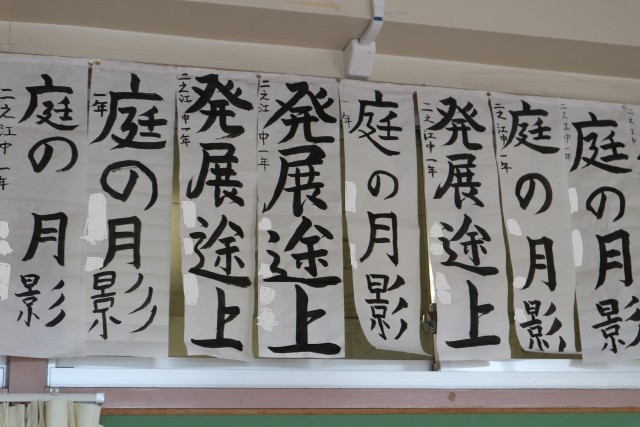 庭の月影
二之江中一年
庭の月影
一年
発展途上
二之江中一年
発展途上
二之江中一年
庭の月影
一年
発展途上
二之江中一年
庭の月影
二之江中一年
庭の月影
二之江中一年